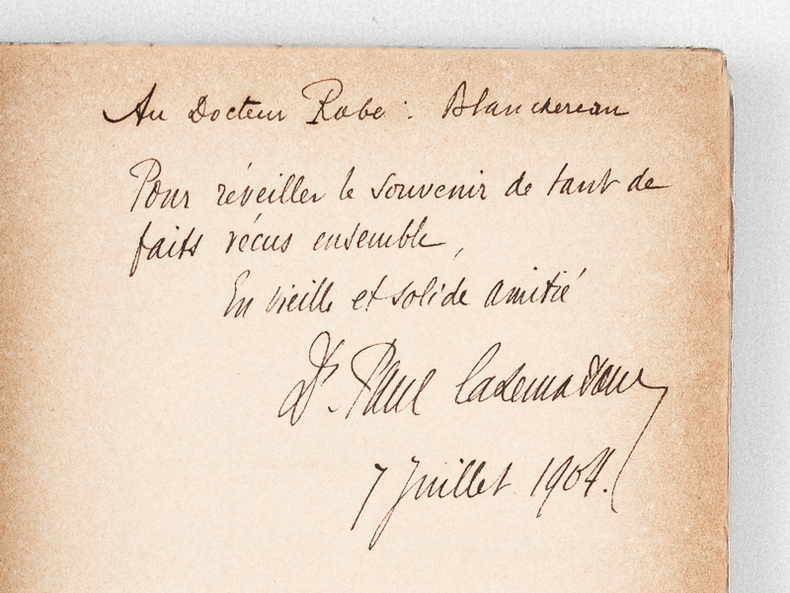 Au Docteur Robe : Blanchereau
Pour réveiller le souvenir de tant de
faits vécus ensemble,
En vieille et solide amitié
Dr. Paul
7 Juillet 1904.